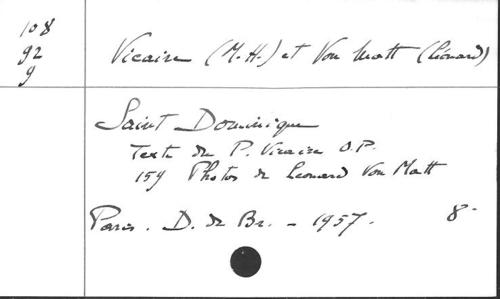 108
92
9
Vicaire (M.-H.) et Von Matt (Léonard)
Saint Dominique
Texte du P. Vicaire O.P.
159 Photos de Leonard Von Matt
Paris. D. de Br. - 1957. 8-